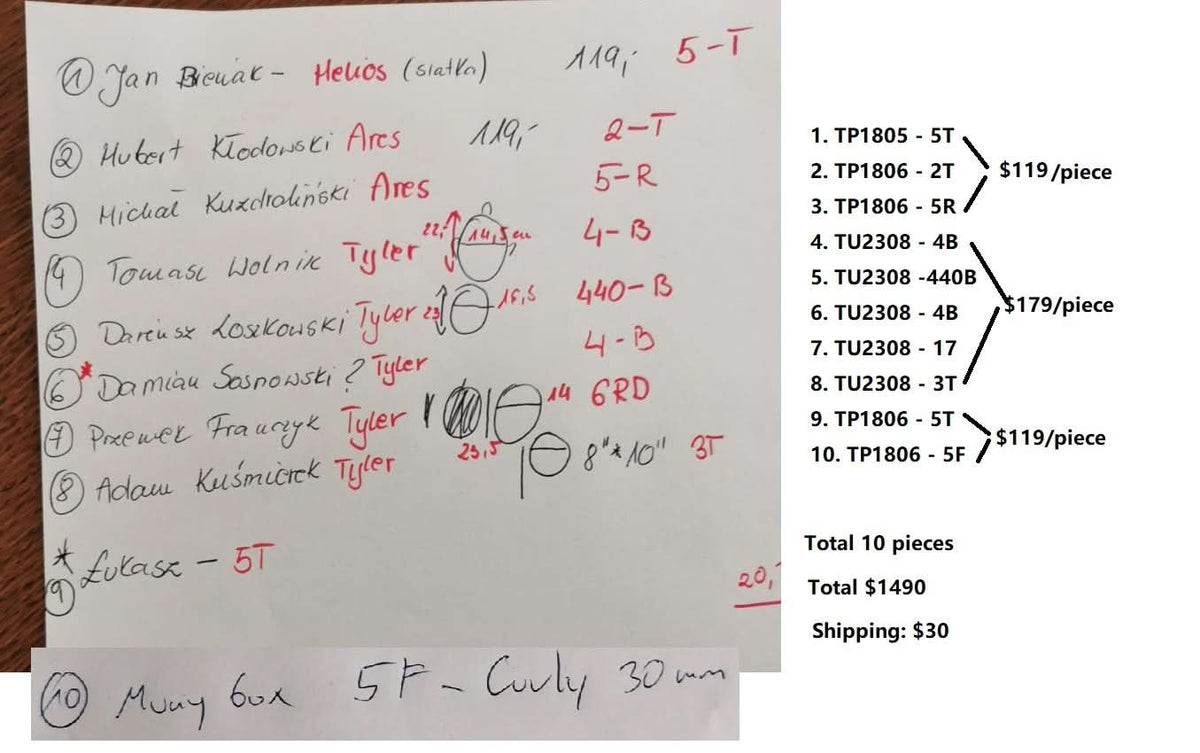 ① Jan Bieniak - Helios (siatka) 119,- 5-T
② Hubert Kłodowski Ares 119,- 2-T
③ Michał Ares 5-R
④ Tomasz Wolnik Tyler 22,- 14,5 cm 4-B
⑤ Dariusz Loszkowski Tyler 23 15,5 440-B
⑥* Damian Sosnowski? Tyler 4-B
⑦ Franczyk Tyler 14 6RD
23,5
⑧ Adam Kuśmierek Tyler 8"*10" 3T
* ⑨ Łukasz - 5T
20,
⑩ 5F - Curly 30 mm
1. TP1805 - 5T
2. TP1806 - 2T
3. TP1806 - 5R
$119/piece
4. TU2308 - 4B
5. TU2308 -440B
6. TU2308 - 4B
7. TU2308 - 17
8. TU2308 - 3T
$179/piece
9. TP1806 - 5T
10. TP1806 - 5F
$119/piece
Total 10 pieces
Total $1490
Shipping: $30